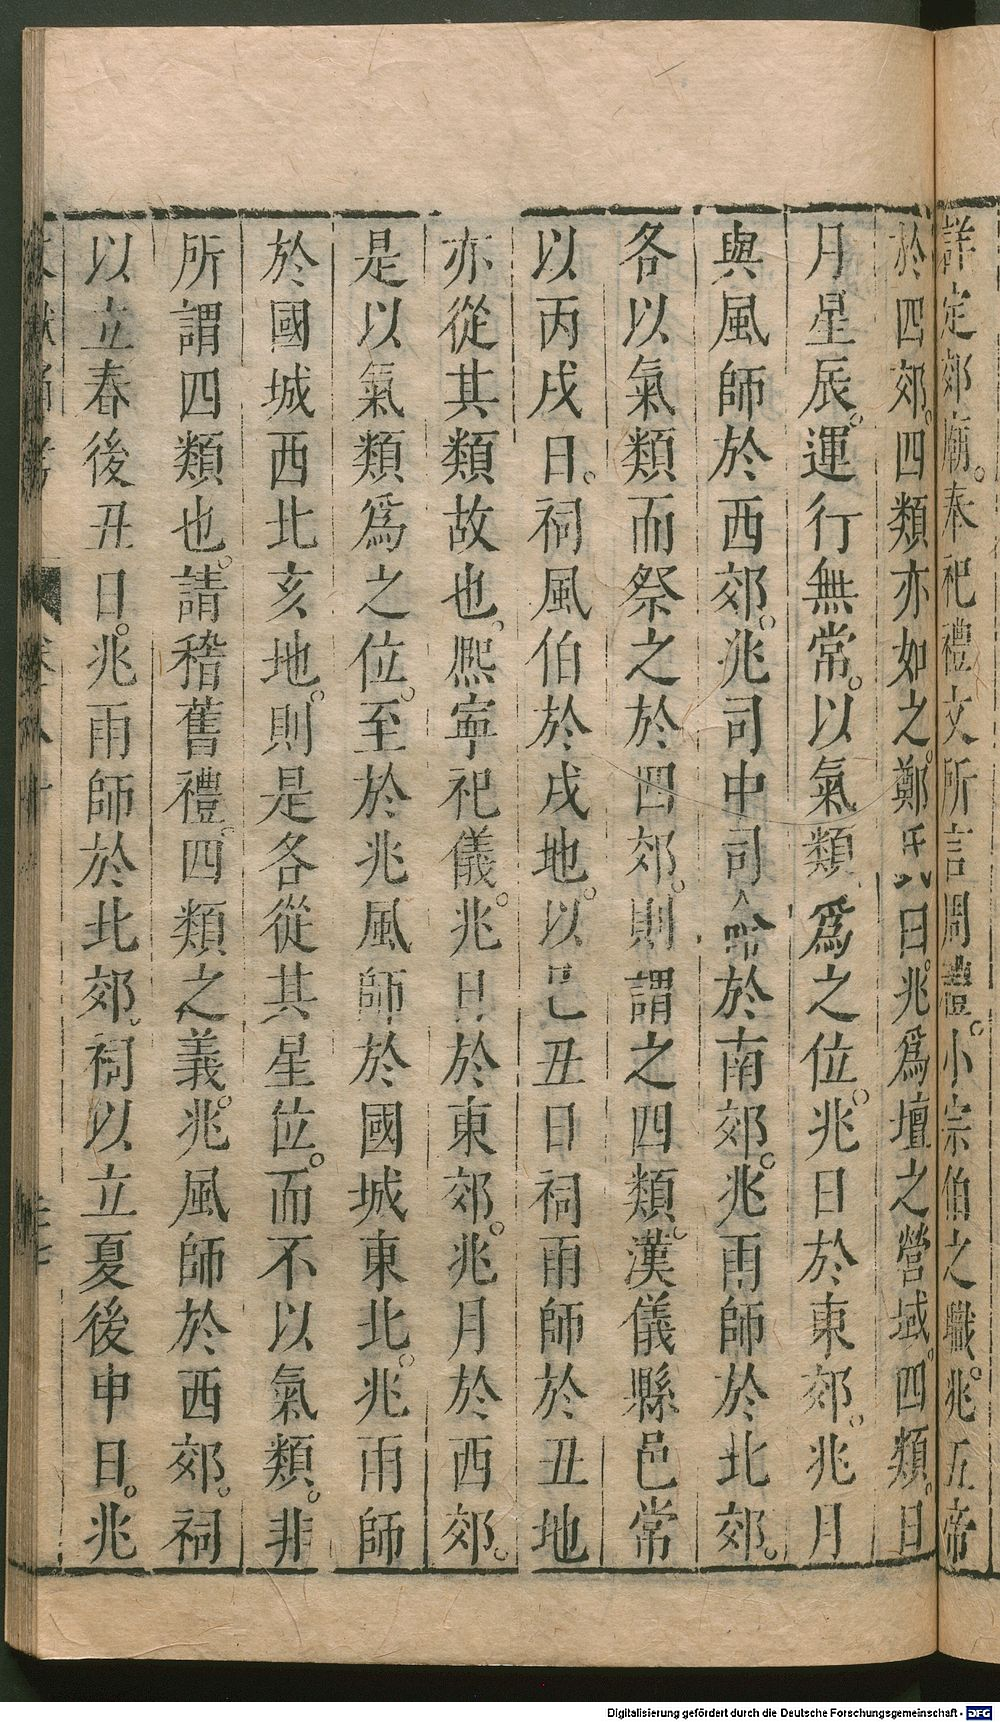 詳定郊廟。奉祀禮文所言周禮。小宗伯之職。兆五帝
於四郊。四類亦如之。鄭氏曰。兆爲壇之營域。四類。日
月星辰。運行無常。以氣類爲之位。兆日於東郊。兆月
與風師於西郊。兆司中司命於南郊。兆雨師於北郊。
各以氣類而祭之於四郊。則謂之四類。漢儀縣邑常
以丙戌日。祠風伯於戌地。以己丑日祠雨師於丑地
亦從其類故也。熈寧祀儀。兆日於東郊。兆月於西郊。
是以氣類爲之位。至於兆風師於國城東北。兆雨師
於國城西北亥地。則是各從其星位。而不以氣類。非
所謂四類也。請稽舊禮。四類之義。兆風師於西郊。祠
以立春後丑日。兆雨師於北郊。祠以立夏後申日。兆
Digitalisierung gefördert durch die Deutsche Forschungsgemeinschaft - DFG